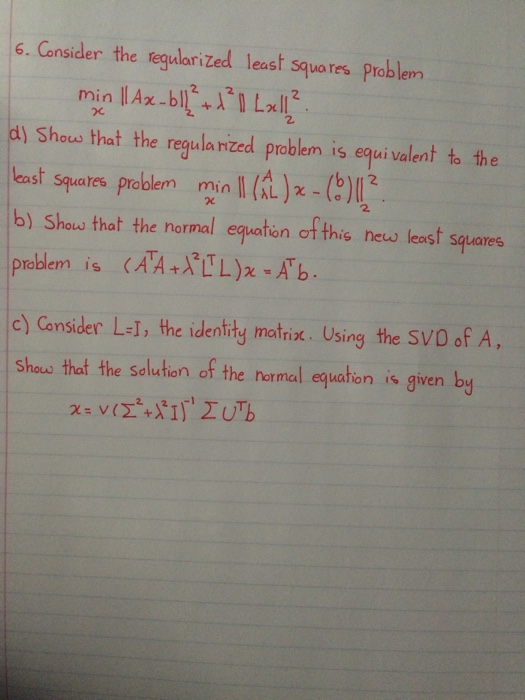 6. Consider the regularized least squares problem
min ||Ax-b||₂² + λ² || Lx||₂².
x
d) Show that the regularized problem is equivalent to the
least squares problem min || (A λL) x - (b 0)||₂².
x
b) Show that the normal equation of this new least squares
problem is (AᵀA + λ²LᵀL)x = Aᵀb.
c) Consider L=I, the identity matrix. Using the SVD of A,
Show that the solution of the normal equation is given by
x = V(Σ²+λ²I)⁻¹ ΣUᵀb